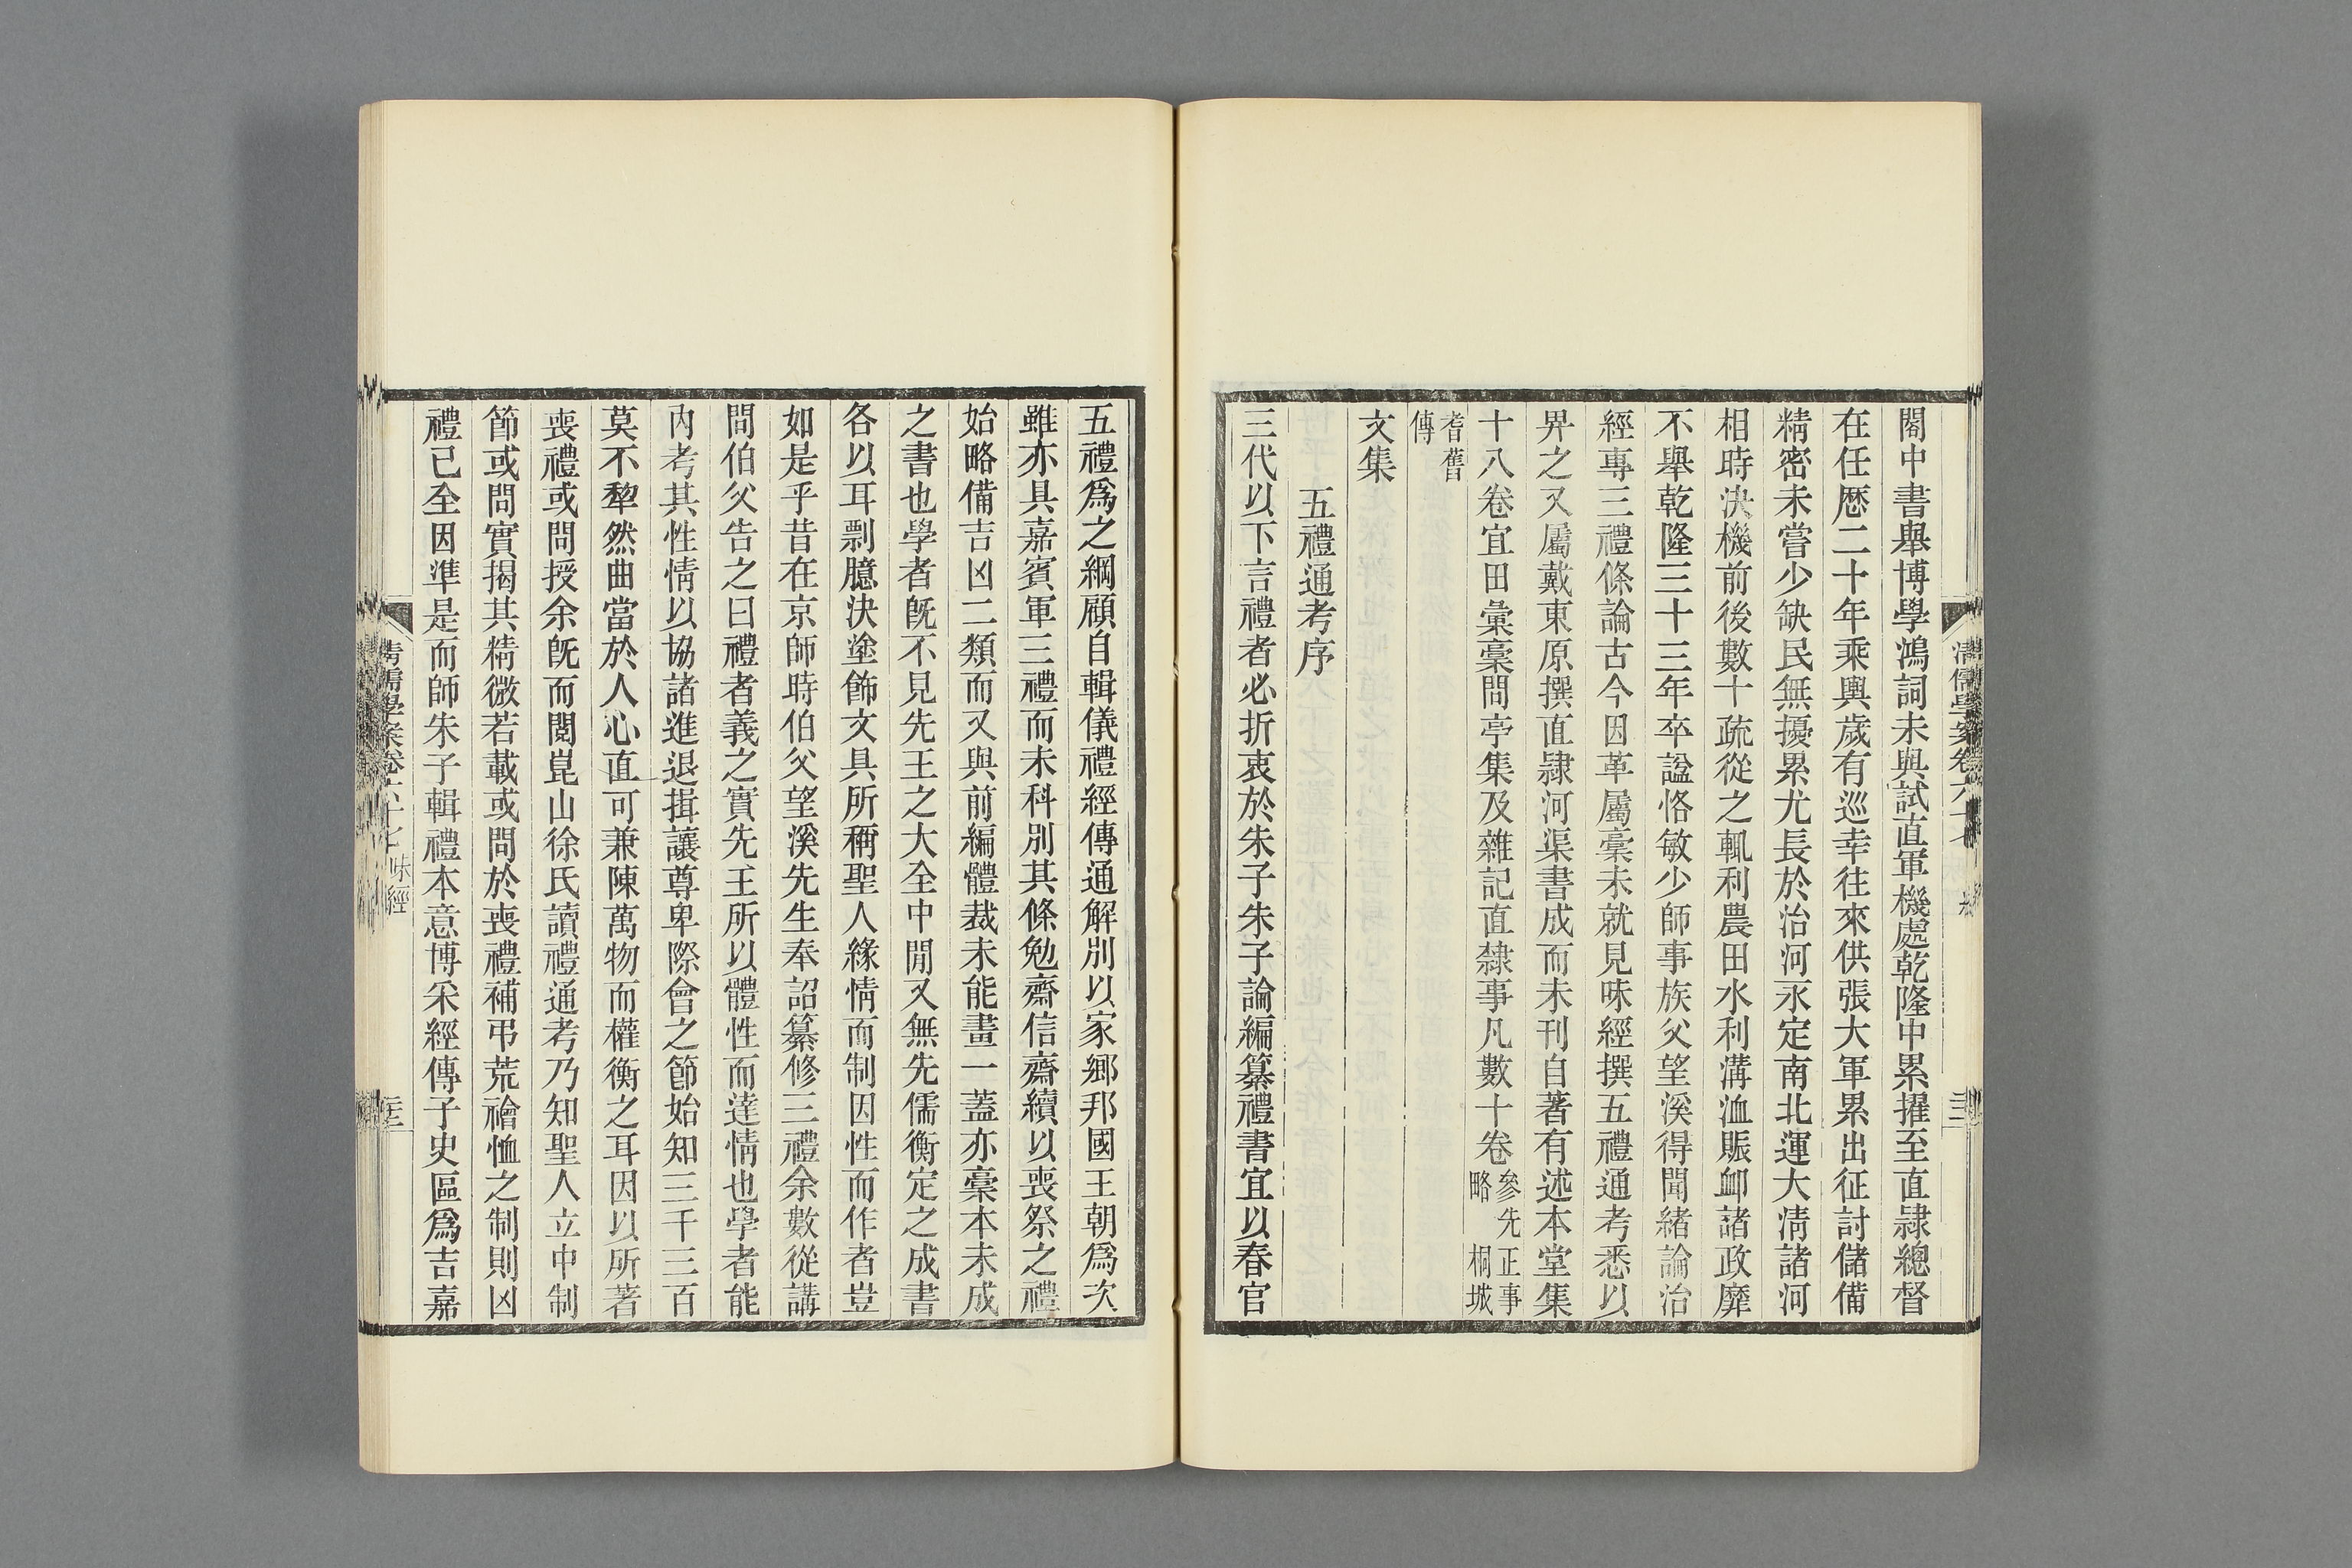 閣中書舉博學鴻詞未與試直軍機處乾隆中累擢至直隸總督
在任歷二十年乘輿歲有巡幸往來供張大軍累出征討儲備
精密未嘗少缺民無擾累尤長於治河永定南北運大淸諸河
相時決機前後數十疏從之輒利農田水利溝洫賑卹諸政靡
不舉乾隆三十三年卒諡恪敏少師事族父望溪得聞緒論治
經專三禮條論古今因革屬稾未就見味經撰五禮通考悉以
畀之又屬戴東原撰直隸河渠書成而未刊自著有述本堂集
十八卷宜田彙稾問亭集及雜記直隸事凡數十卷參先正事略 桐城
耆舊傳
文集
五禮通考序
三代以下言禮者必折衷於朱子朱子論編纂禮書宜以春官
五禮爲之綱顧自輯儀禮經傳通解別以家鄉邦國王朝爲次
雖亦具嘉賓軍三禮而未科別其條勉齋信齋續以喪祭之禮
始略備吉凶二類而又與前編體裁未能畫一蓋亦稾本未成
之書也學者旣不見先王之大全中閒又無先儒衡定之成書
各以耳剽臆決塗飾文具所稱聖人緣情而制因性而作者豈
如是乎昔在京師時伯父望溪先生奉詔纂修三禮余數從講
問伯父告之曰禮者義之實先王所以體性而達情也學者能
內考其性情以協諸進退揖讓尊卑際會之節始知三千三百
莫不犂然曲當於人心直可兼陳萬物而權衡之耳因以所著
喪禮或問授余旣而閱崑山徐氏讀禮通考乃知聖人立中制
節或問實揭其精微若載或問於喪禮補弔荒禬恤之制則凶
禮已全因準是而師朱子輯禮本意博采經傳子史區爲吉嘉
清儒學案卷六十七 味經